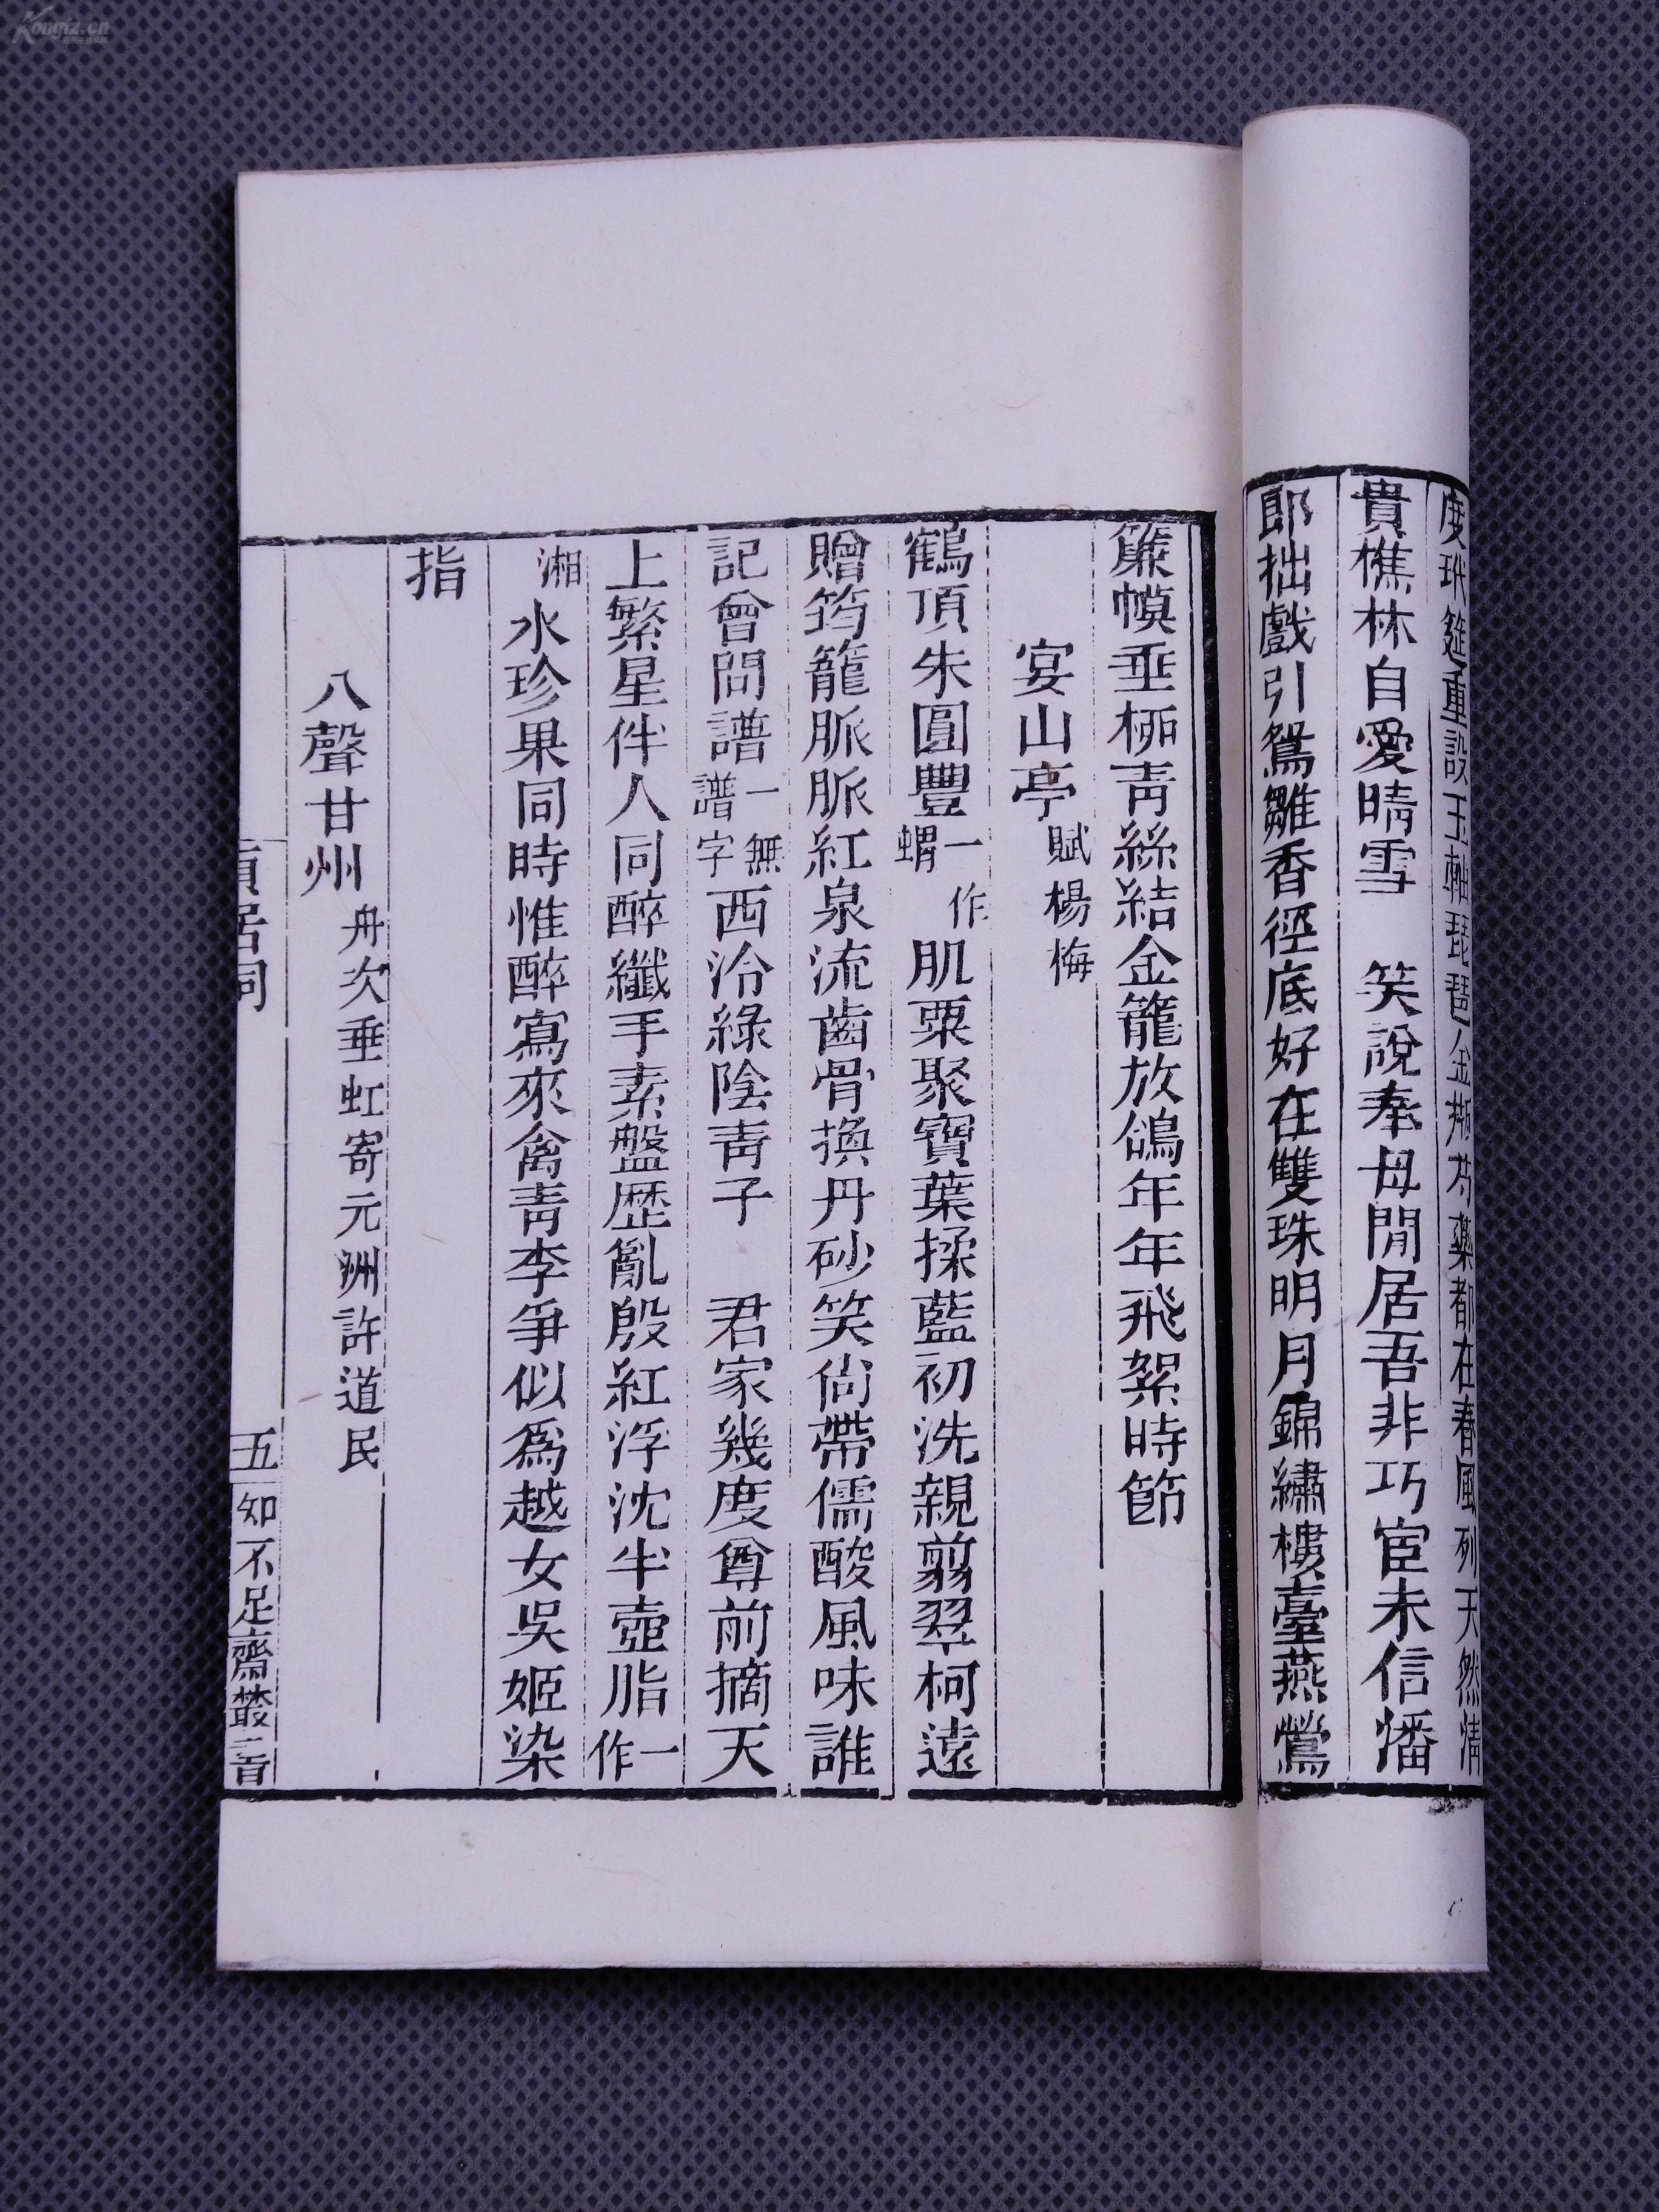 度玳筵重設玉軸琵琶金瓶芍藥都在春風列天然清
貴樵林自愛晴雪　笑說奉母閒居吾非巧宦未信潘
郎拙戲引鴛雛香徑底好在雙珠明月錦繡樓臺燕鶯
簾幙垂柳青絲結金籠放鴿年年飛絮時節
宴山亭賦楊梅
鶴頂朱圓豐一作蝟肌粟聚寶葉揉藍初洗親翦翠柯遠
贈筠籠脈脈紅泉流齒骨換丹砂笑尙帶儒酸風味誰
記曾問譜一無譜字西泠綠陰靑子　君家幾度尊前摘天
上繁星伴人同醉纖手素盤歷亂殷紅浮沈半壺脂一作
湘水珍果同時惟醉寫來禽靑李爭似爲越女吳姬染
指
八聲甘州舟次垂虹寄元洲許道民
貞居詞
五
知不足齋叢書
Kongfz.cn